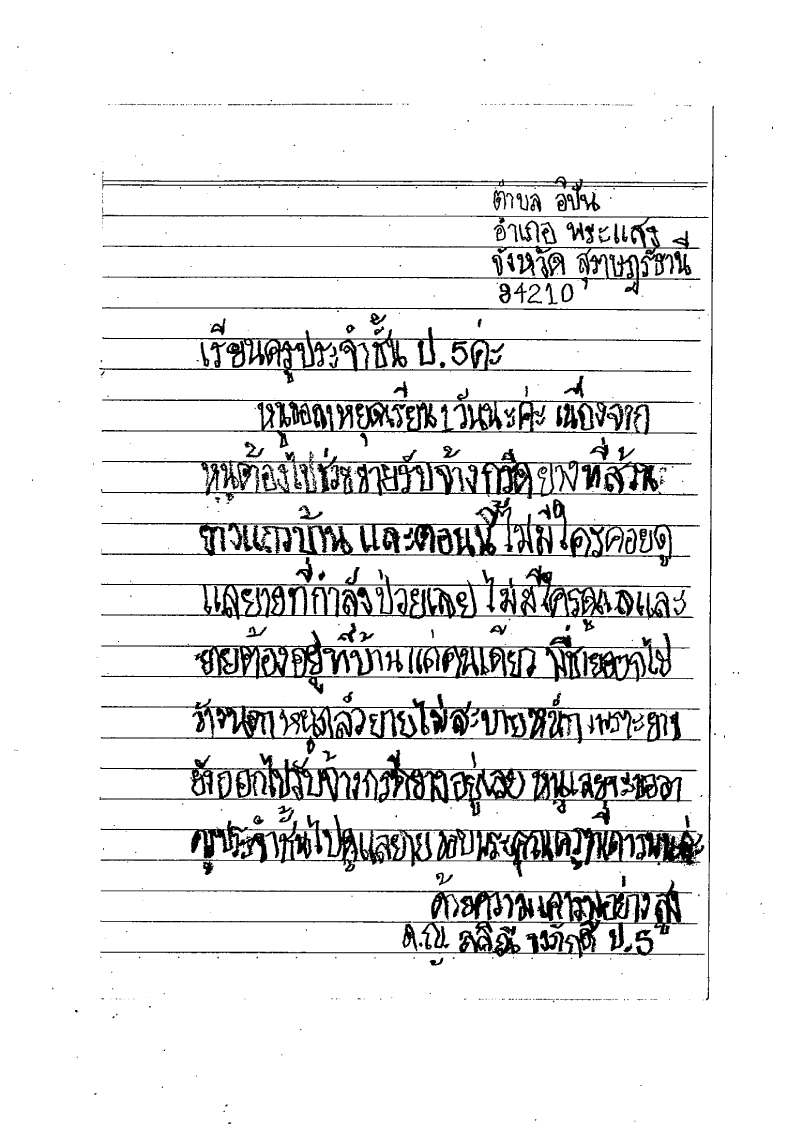 ตำบล อิปัน
อำเภอ พระแสง
จังหวัด สุราษฎร์ธานี
84210
เรียนครูประจำชั้น ป.5ค่ะ
หนูขอลาหยุดเรียน 1 วันนะค่ะ เนื่องจาก
หนูต้องไปช่วยยายรับจ้างกรีดยางที่สวน
แถวบ้าน และตอนนี้ ไม่มีใครคอยดู
แลยายที่กำลังป่วยเลย ไม่มีใครดูแลและ
ยายต้องอยู่ที่บ้านแค่คนเดียว พี่ชายออกไป
หนูแล้วยายไม่สะบายหนัก เพราะยาย
ยังออกไปรับจ้างกรีดยางอยู่เลย หนูเลยจะขอลา
ครูประจำชั้นไปดูแลยาย ขอบพระคุณครู
ด้วยความเคารพอย่างสูง
ด.ญ. ป.5